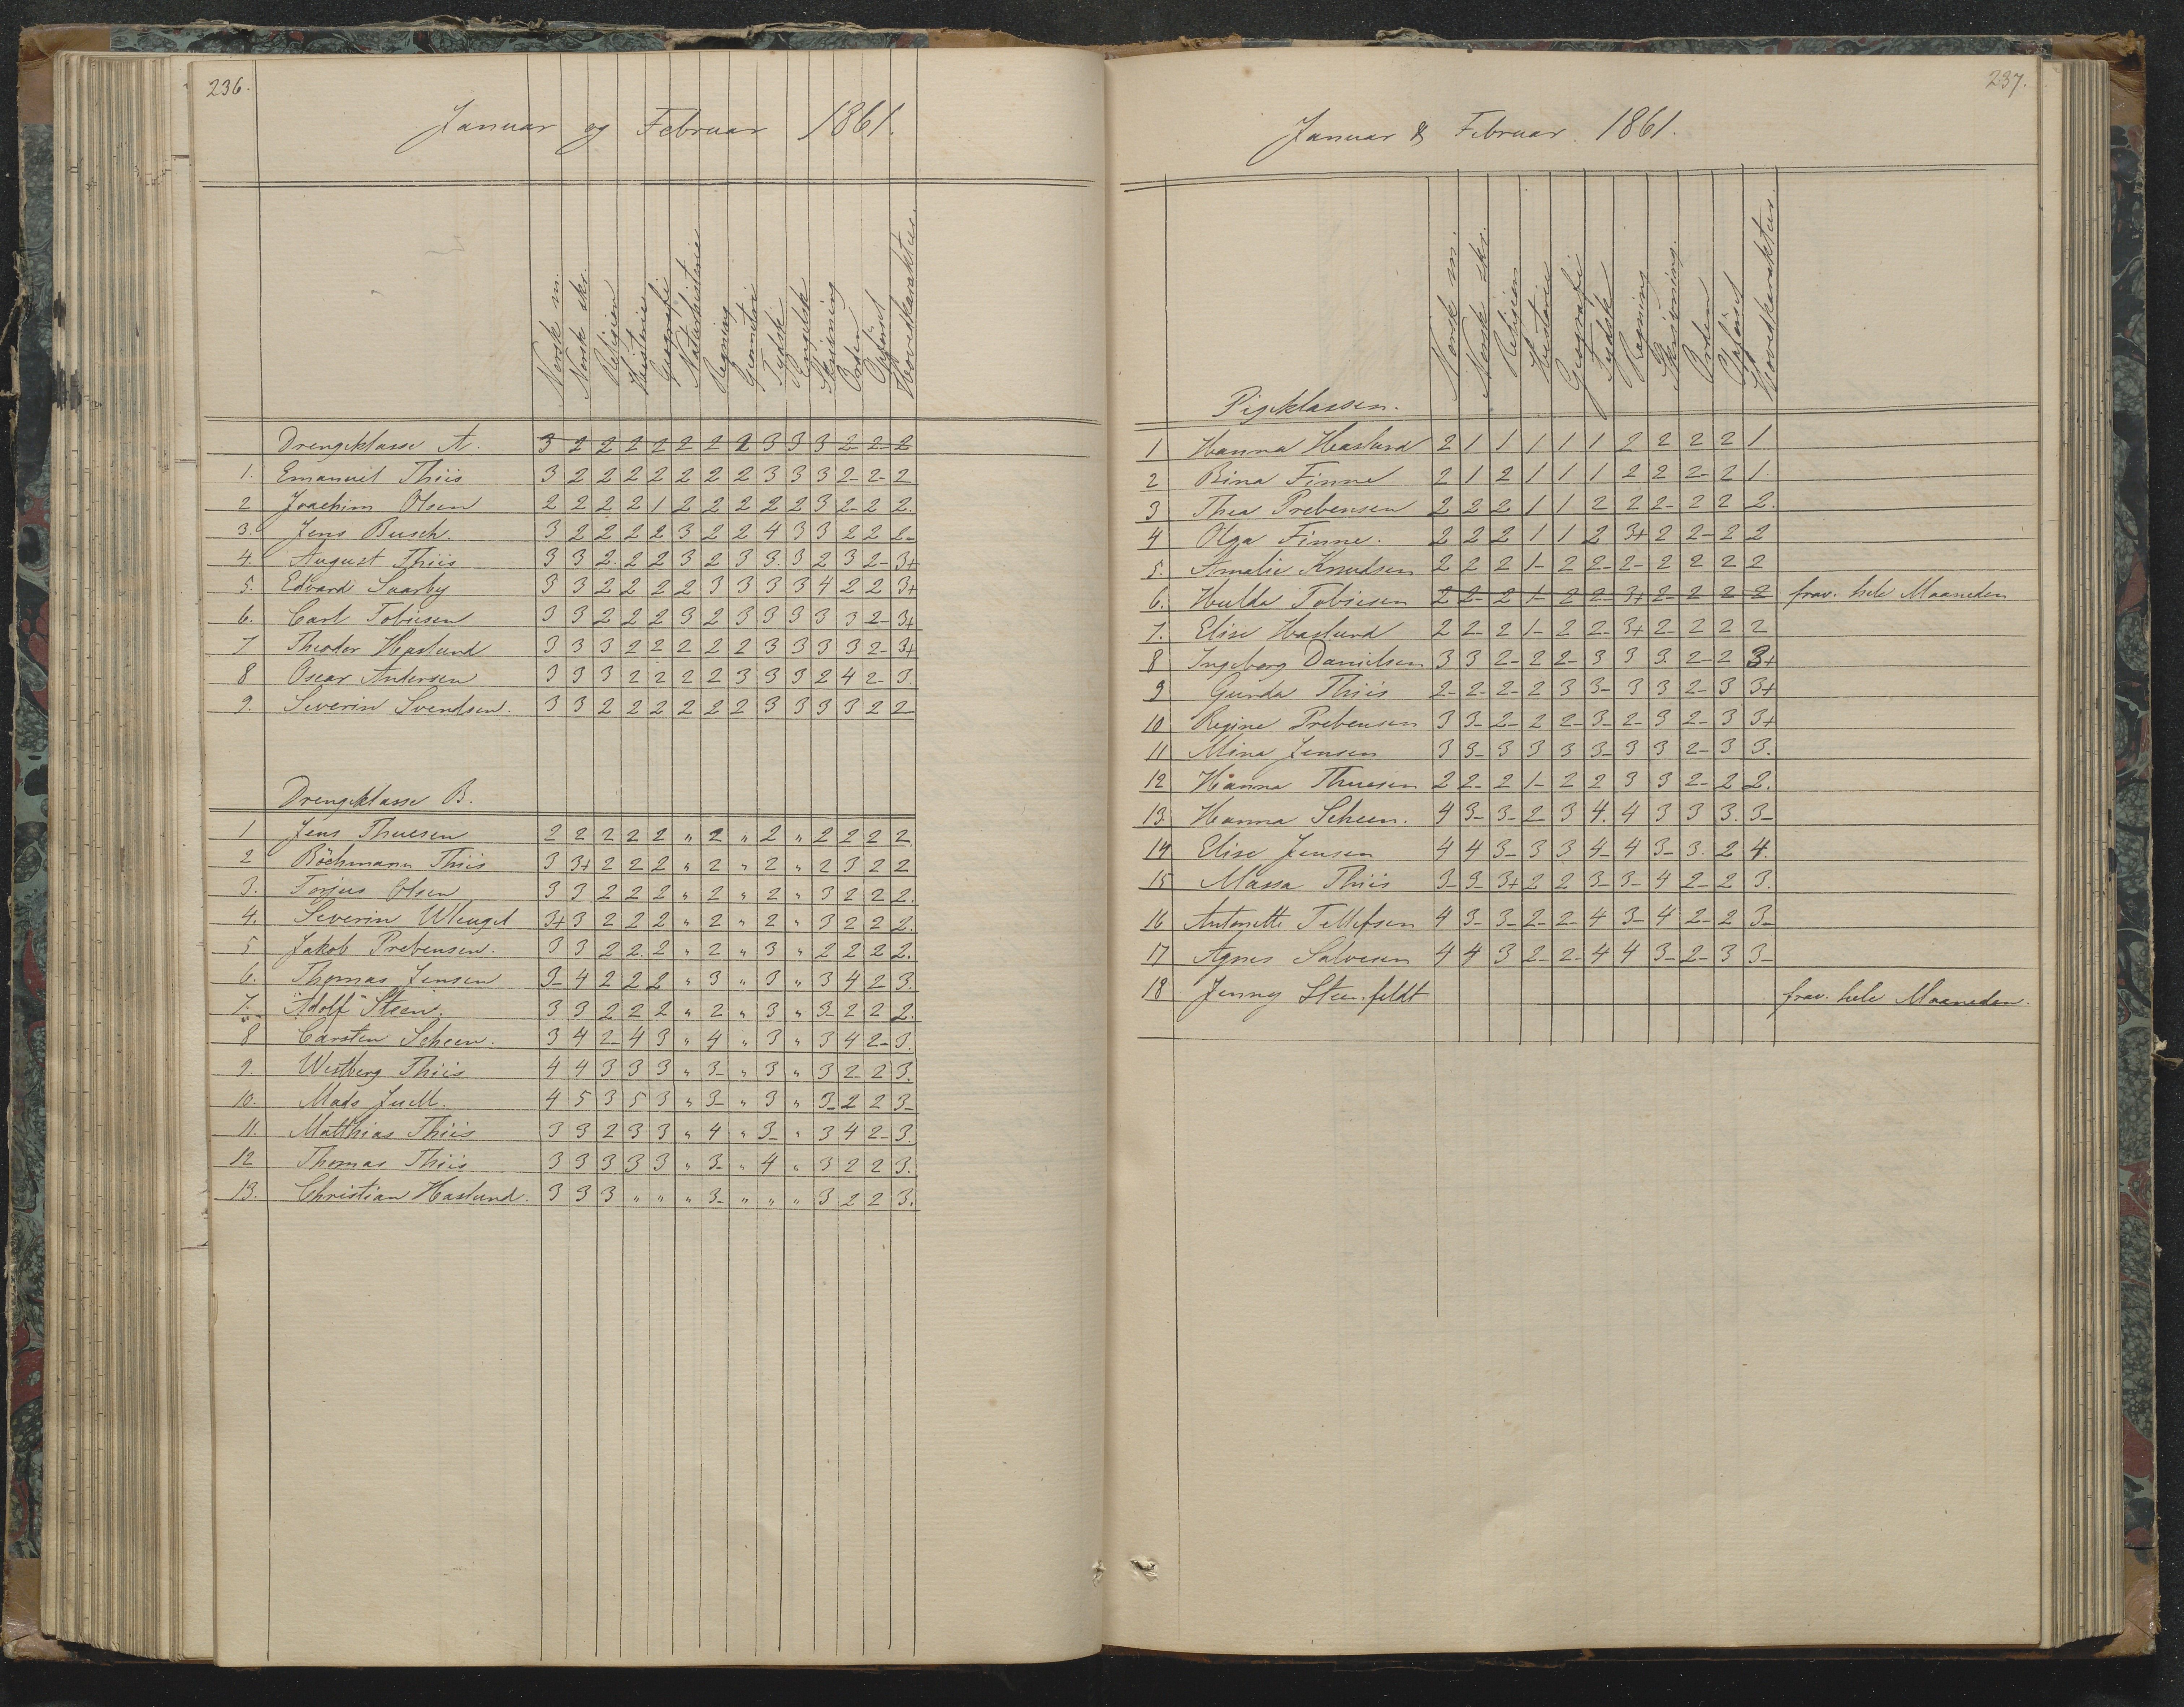 236.
Januar og Februar 1861.
Norsk m. Norsk skr. Religion Historie Geografi Naturhistorie Regning Geometri Tydsk Engelsk Skrivning Orden Opförsel Hovedkarakter.
Drengeklasse A. 3 2 2 2 2 2 2 2 3 3 3 2- 2- 2
1. Emanuel Thiis 3 2 2 2 2 2 2 2 3 3 3 2- 2- 2
2 Joachim Olsen 2 2 2 2 1 2 2 2 2 2 3 2- 2 2.
3. Jens Busch. 3 2 2 2 2 3 2 2 4 3 3 2 2 2-
4. August Thiis 3 3 2. 2 2 3 2 3 3. 3 2 3 2- 3+
5. Edvard Saarby 3 3 2 2 2 2 3 3 3 3 4 2 2 3+
6. Carl Tobiesen 3 3 2 2 2 3 2 3 3 3 3 3 2- 3+
7 Theodor Haslund 3 3 3 2 2 2 2 2 3 3 3 3 2- 3+
8 Oscar Andersen 3 3 3 2 2 2 2 3 3 3 2 4 2- 3.
9. Severin Svendsen. 3 3 2 2 2 2 2 2 3 3 3 3 2 2-
Drengeklasse B.
1 Jens Thuesen 2 2 2 2 2 " 2 " 2 " 2 2 2 2.
2 Böchmann Thiis 3 3+ 2 2 2 " 2 " 2 " 2 3 2 2
3. Torjus Olsen 3 3 2 2 2 " 2 " 2 " 3 2 2 2.
4. Severin Wleugel 3+ 3 2 2 2 " 2 " 2 " 3 2 2 2.
5 Jakob Prebensen. 3 3 2 2. 2 " 2 " 3 " 2 2 2 2.
6. Thomas Jensen 3- 4 2 2 2 " 3 " 3 " 3 4 2 3.
7. "Adolf" Steen. 3 3 2 2 2 " 2 " 3 " 3- 2 2 2.
8 Carsten Scheen. 3 4 2- 4 3 " 4 " 3 " 3 4 2- 3.
9. Westberg Thiis 4 4 3 3 3 " 3- " 3 " 3 2- 2 3.
10. Mads Juell. 4 5 3 5 3 " 3- " 3 " 3- 2 2 3-
11. Matthias Thiis 3 3 2 3 3 " 4 " 3- " 3 4 2- 3.
12 Thomas Thiis 3 3 3 3 3 " 3- " 4 " 3 2 2 3.
13. Christian Haslund. 3 3 3 " " " 3- " " " 3 2 2 3.
237.
Januar & Februar. 1861.
Norsk m. Norsk skr. Religion Historie Geografi Tydsk Regning Skrivning. Orden Opförsel Hovedkarakter.
Pigeklassen.
1 Hanna Haslund 2 1 1 1 1 1 2 2 2 2 1
2 Bina Finne 2 1 2 1 1 1 2 2 2- 2 1.
3 Thea Prebensen 2 2 2 1 1 2 2 2- 2 2 2.
4 Olga Finne. 2 2 2 1 1 2 3+ 2 2- 2 2
5. Amalie Knudsen 2 2 2 1- 2 2- 2- 2 2 2 2
6. Hulda Tobiesen 2 2- 2 1- 2 2- 3+ 2- 2 2 2 frav. hele Maaneden
7. Elise Haslund 2 2- 2 1- 2 2- 3+ 2- 2 2 2
8 Ingeborg Danielsen 3 3 2- 2 2- 3 3 3. 2- 2 3+
9 Gunda Thiis 2- 2- 2- 2 3 3- 3 3 2- 3 3+
10 Regine Prebensen 3 3- 2- 2 2- 3- 2- 3 2- 3 3+
11 Mina Jensen 3 3- 3 3 3 3- 3 3 2- 3 3.
12 Hanna Thuesen 2 2- 2 1- 2 2 3 3 2- 2 2.
13 Hanna Scheen. 4 3- 3- 2 3 4. 4 3 3 3. 3-
14 Elise Jensen 4 4 3- 3 3 4- 4 3- 3. 2 4.
15 Massa Thiis 3- 3- 3+ 2 2 3- 3- 4 2- 2 3.
16 Antonette Tellefsen 4 3- 3- 2- 2- 4 3- 4 2- 2 3-
17 Agnes Salvesen 4 4 3 2- 2- 4 4 3- 2- 3 3-
18 Jenny Steenfeldt frav. hele Maaneden.